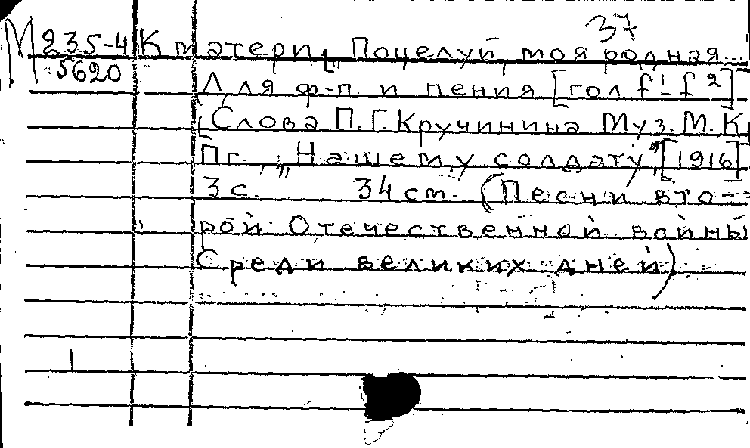 37
М 235-4 К матери, „Поцелуй, моя родная...
5620
Для ф-п. и пения [гол f¹-f²]
(Слова П. Г. Кручинина Муз. М. К
Пг., „Нашему солдату", [1916]
3 с. 34 cm. (Песни вто-
рой Отечественной войны
Среди великих дней)